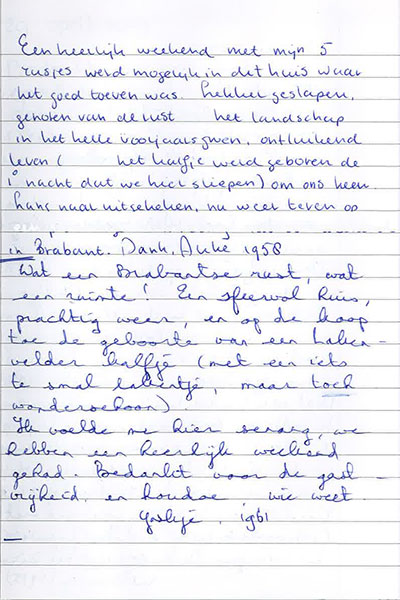 Een heerlijk weekend met mijn 5
zusjes werd mogelijk in dit huis waar
het goed toeven was. Lekker geslapen,
genoten van de rust het landschap
in het helle voorjaarsgroen, ontluikend
leven ( het kalfje werd geboren de
1e nacht dat we hier sliepen) om ons heen.
naar uitgekeken, nu weer teren op
in Brabant. Dank, Anke 1958
Wat een Brabantse rust, wat
een ruimte! Een sfeervol huis,
prachtig weer, en op de koop
toe de geboorte van een Laken-
velder kalfje (met een iets
te smal lakentje, maar toch
wonderschoon).
Ik voelde me hier senang, we
hebben een heerlijk weekend
gehad. Bedankt voor de gast-
vrijheid, en houdoe, wie weet.
1961